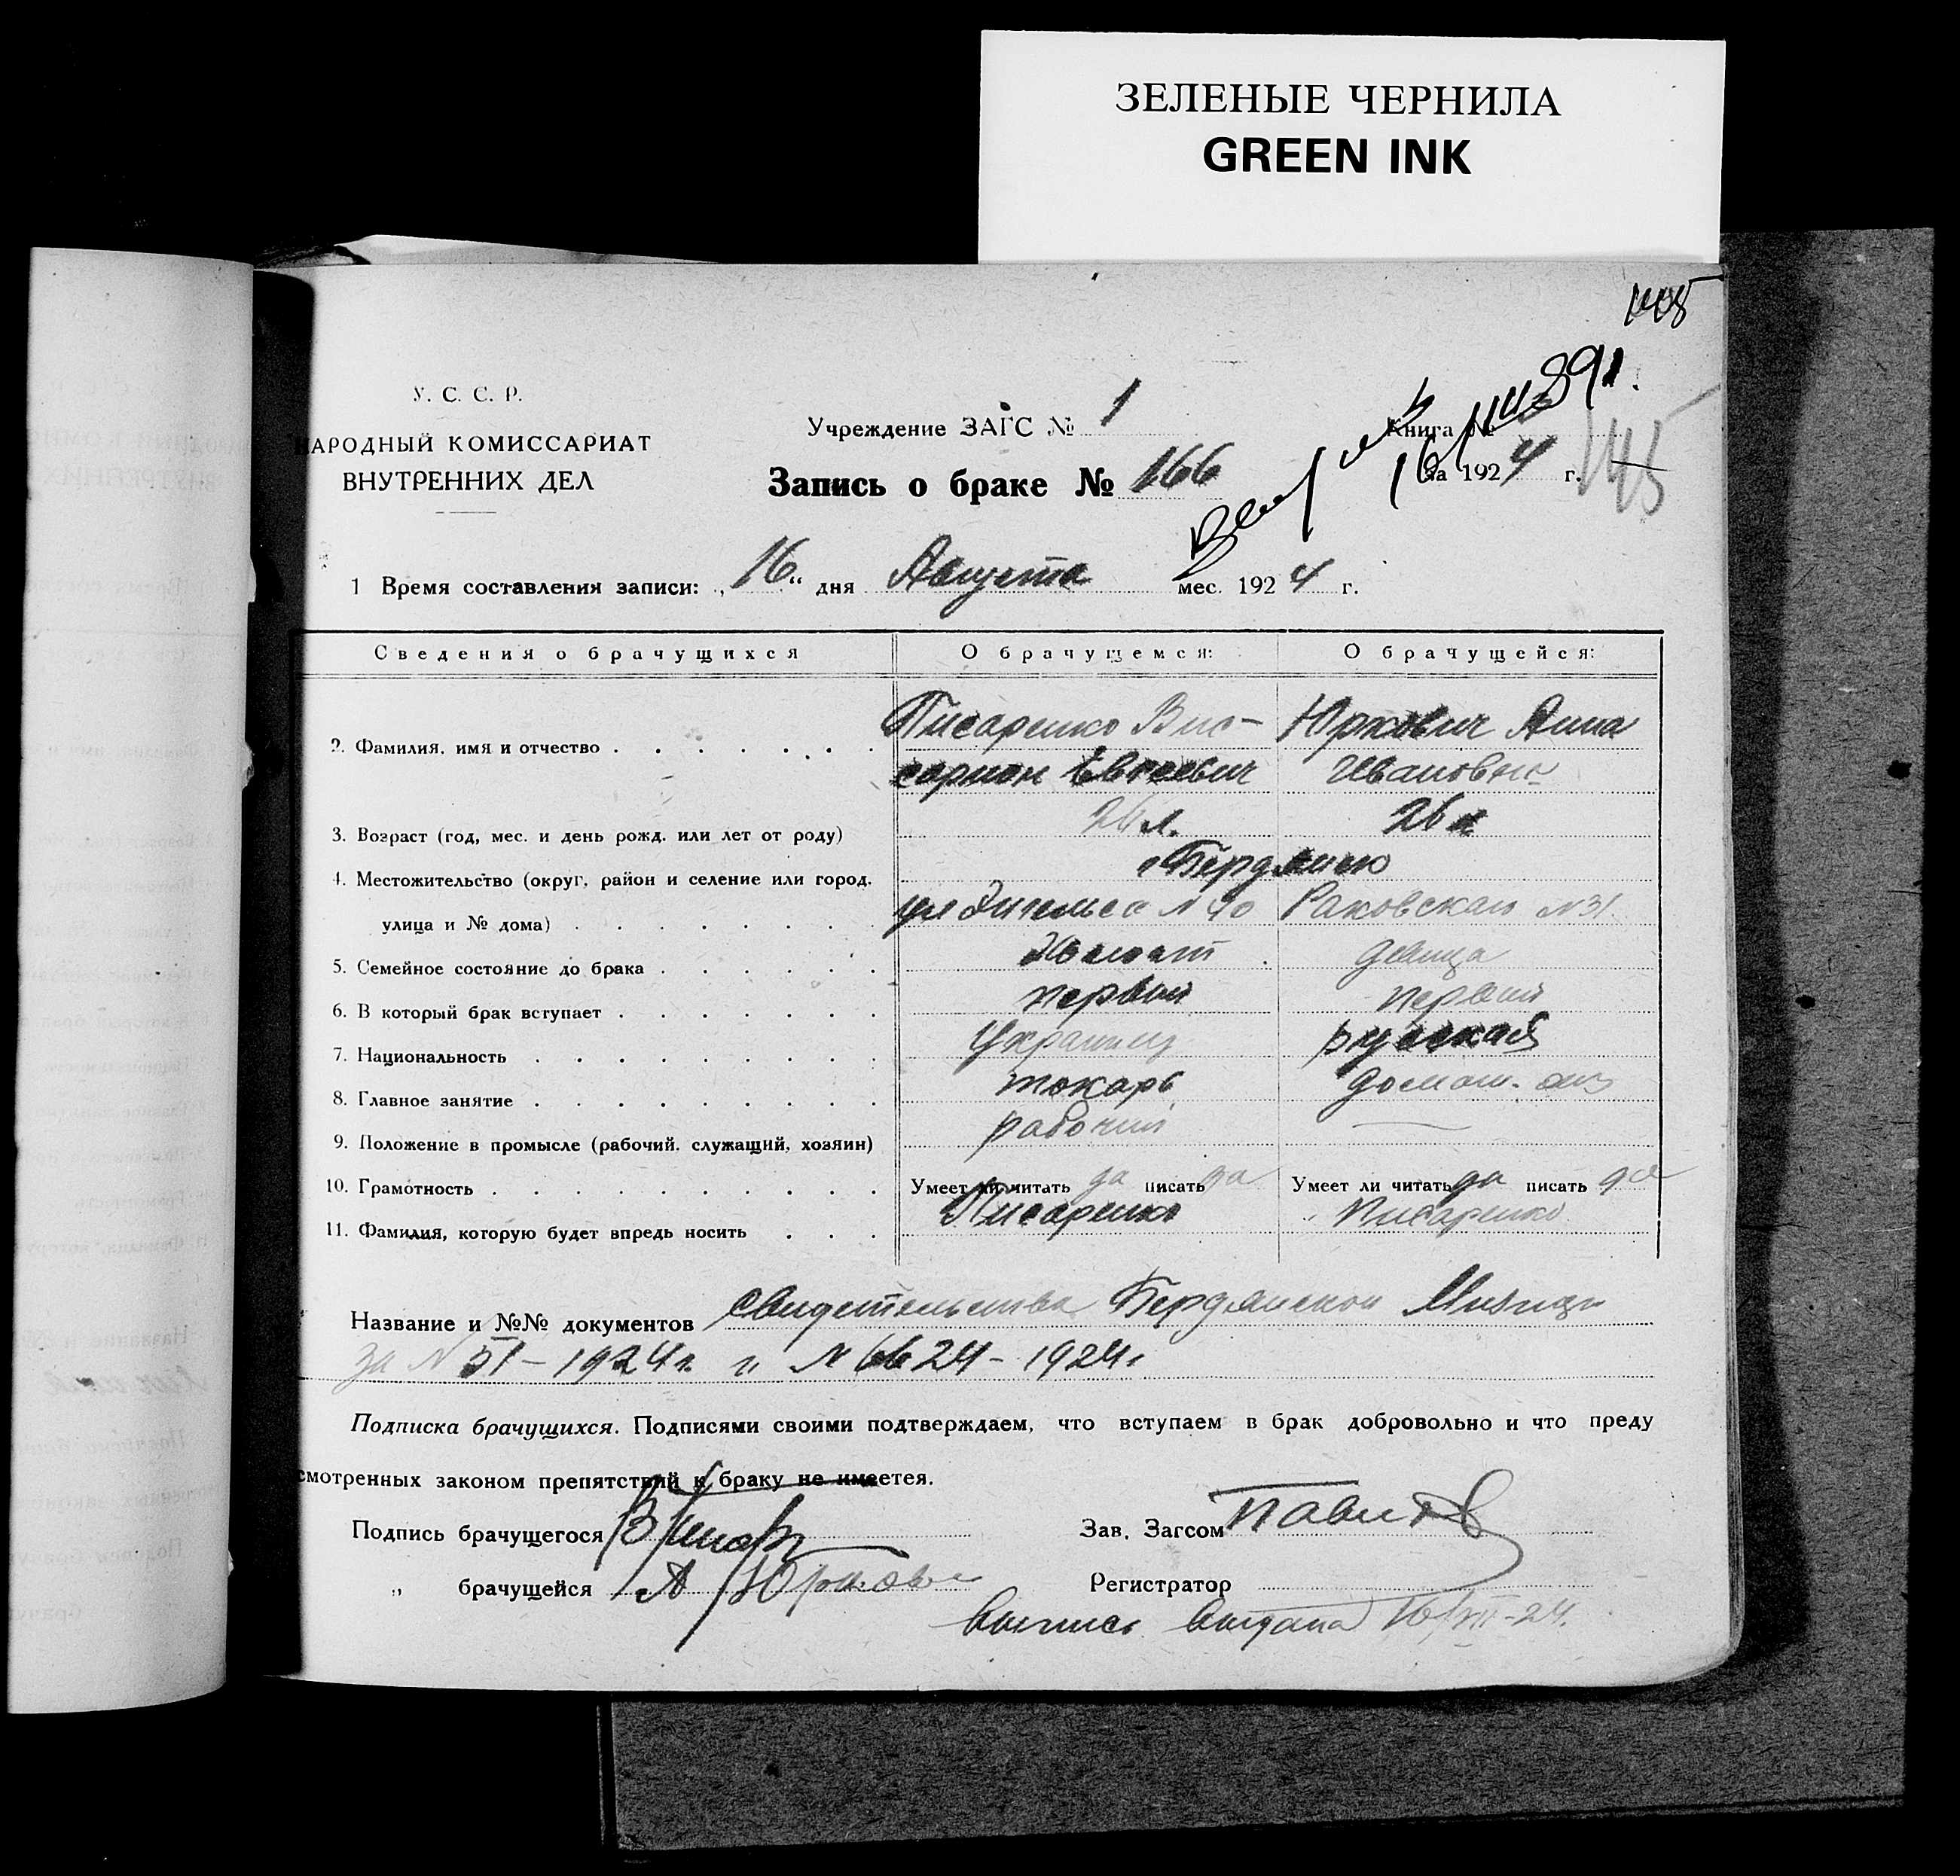 ЗЕЛЕНЫЕ ЧЕРНИЛА
GREEN INK
145
У. С. С. Р.
НАРОДНЫЙ КОМИССАРИАТ
ВНУТРЕННИХ ДЕЛ
Учреждение ЗАГС № 1
Книга №
Запись о браке № 166
за 1924 г.
145
1 Время составления записи: „16“ дня Августа мес. 1924 г.
Сведения о брачущихся О брачущемся: О брачущейся:
2. Фамилия, имя и отчество Писаренко Вис- Юркович Анна
сарион Евсеевич Ивановна
3. Возраст (год, мес. и день рожд. или лет от роду) 26 л. 26 л
4. Местожительство (округ, район и селение или город, г Бердянск
улица и № дома) ул Энгельса № 40 Раковскаго № 31
5. Семейное состояние до брака Холост девица
6. В который брак вступает первый первый
7. Национальность Украинец русская
8. Главное занятие токарь домаш. хоз
9. Положение в промысле (рабочий, служащий, хозяин) рабочий —
10. Грамотность Умеет ли читать да писать да Умеет ли читать да писать да
11. Фамилия, которую будет впредь носить Писаренко Писаренко
Название и №№ документов Свидетельства Бердянской Милиции
за № 51 – 1924 г. и № 6624 – 1924 г
Подписка брачущихся. Подписями своими подтверждаем, что вступаем в брак добровольно и что преду
смотренных законом препятствий к браку не имеется.
Подпись брачущегося
Зав. Загсом
„ брачущейся А Юркович
Регистратор
Выпись выдана 16/VIII-24.